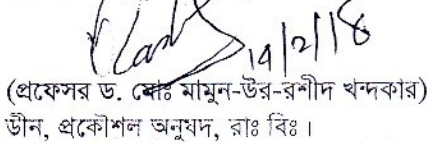 19/2/18
(প্রফেসর ড. মোঃ মামুন-উর-রশীদ খন্দকার)
ডীন, প্রকৌশল অনুষদ, রাঃ বিঃ।